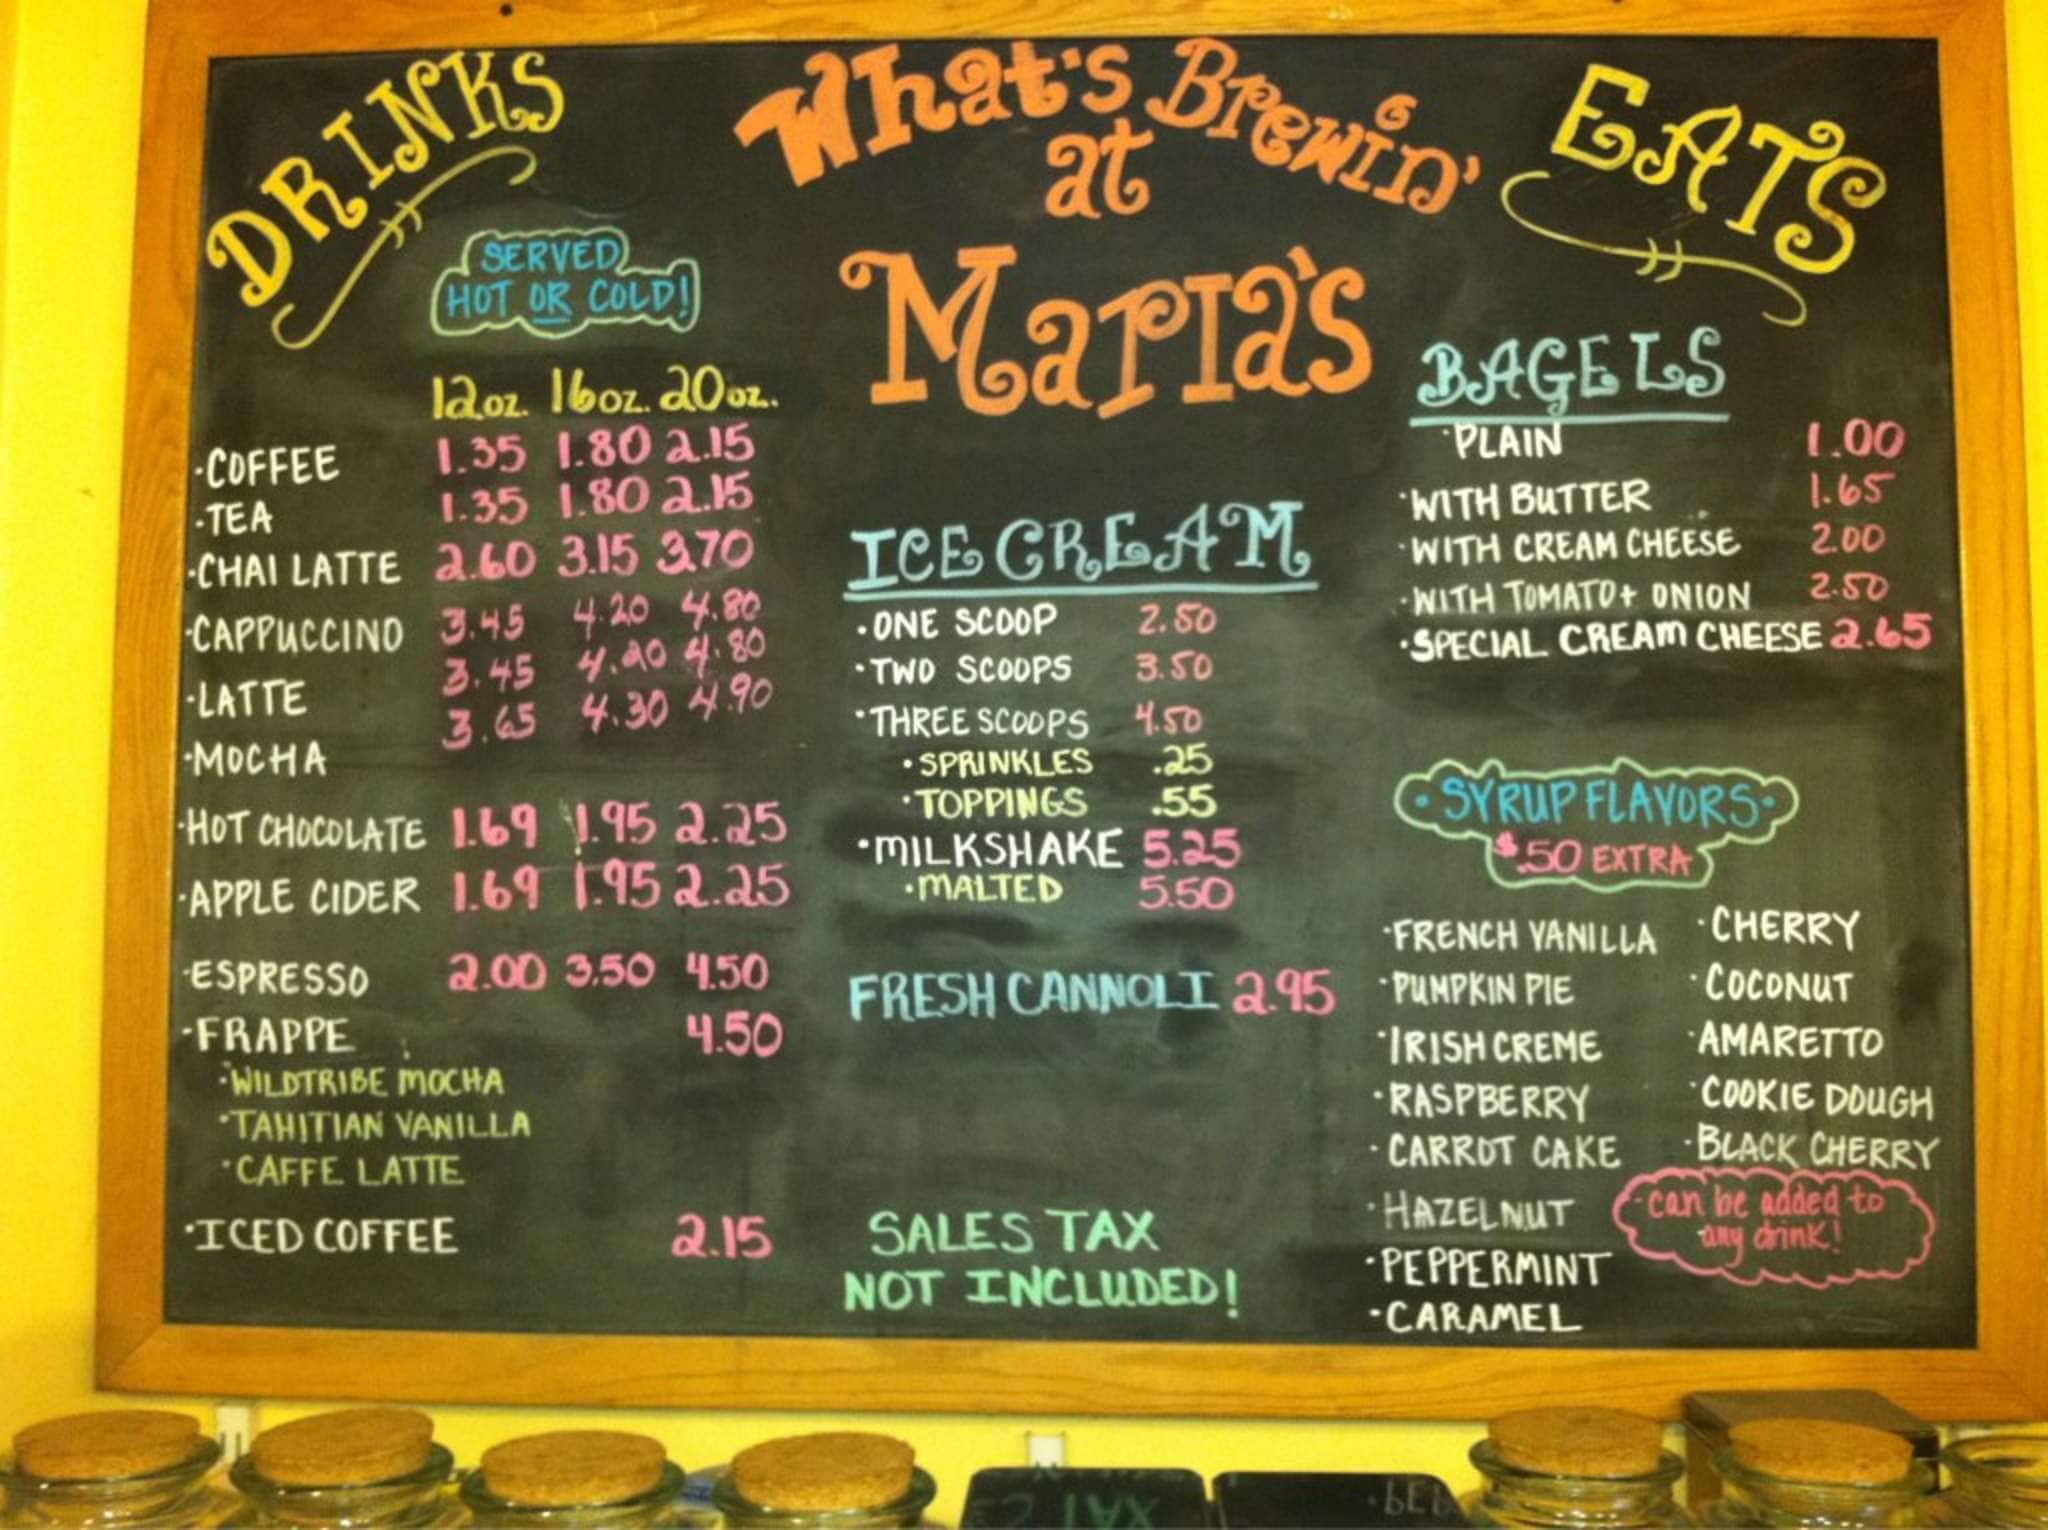 DRINKS
SERVED
HOT OR COLD!
12oz. 16oz. 20oz.
·COFFEE 1.35 1.80 2.15
·TEA 1.35 1.80 2.15
·CHAI LATTE 2.60 3.15 3.70
·CAPPUCCINO 3.45 4.20 4.80
·LATTE 3.45 4.20 4.80
·MOCHA 3.65 4.30 4.90
·HOT CHOCOLATE 1.69 1.95 2.25
·APPLE CIDER 1.69 1.95 2.25
·ESPRESSO 2.00 3.50 4.50
·FRAPPE 4.50
·WILDTRIBE MOCHA
·TAHITIAN VANILLA
·CAFFE LATTE
·ICED COFFEE 2.15
What's Brewin'
at
Maria's
ICE CREAM
·ONE SCOOP 2.50
·TWO SCOOPS 3.50
·THREE SCOOPS 4.50
·SPRINKLES .25
·TOPPINGS .55
·MILKSHAKE 5.25
·MALTED 5.50
FRESH CANNOLI 2.95
SALES TAX
NOT INCLUDED!
EATS
BAGELS
·PLAIN 1.00
·WITH BUTTER 1.65
·WITH CREAM CHEESE 2.00
·WITH TOMATO + ONION 2.50
·SPECIAL CREAM CHEESE 2.65
·SYRUP FLAVORS·
$.50 EXTRA
·FRENCH VANILLA ·CHERRY
·PUMPKIN PIE ·COCONUT
·IRISH CREME ·AMARETTO
·RASPBERRY ·COOKIE DOUGH
·CARROT CAKE ·BLACK CHERRY
·HAZELNUT
·PEPPERMINT
·CARAMEL
·can be added to
any drink!